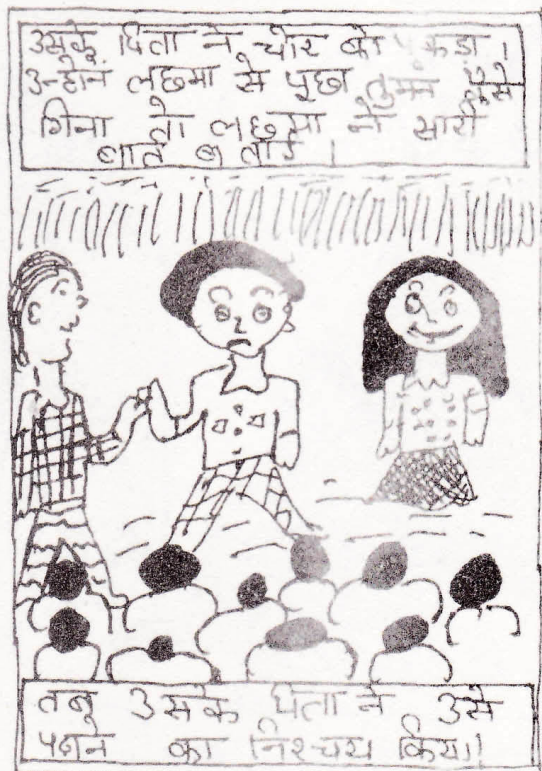 उसके पिता ने चोर को पकड़ा।
उन्होनें लछमा से पूछा तुमने कैसे
गिना तो लछमा ने सारी
बातें बताई।
तब उसके पिता ने उसे
पढ़ाने का निश्चय किया।